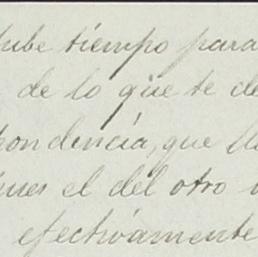 tube tiempo para
de lo que te de
pondencia, que
el del otro
efectivamente